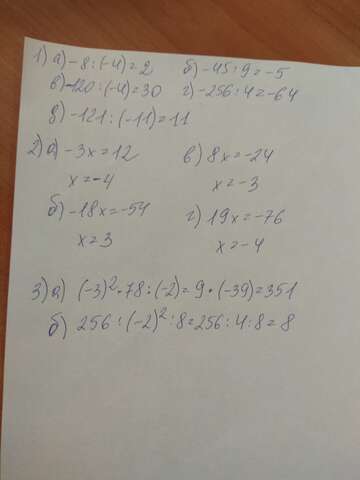 1) а) -8:(-4)=2 б) -45:9=-5
в) -120:(-4)=30 г) -256:4=-64
д) -121:(-11)=11
2) а) -3x=12 в) 8x=-24
x=-4 x=-3
б) -18x=-54 г) 19x=-76
x=3 x=-4
3) а) (-3)²·78:(-2)=9·(-39)=351
б) 256:(-2)²:8=256:4:8=8